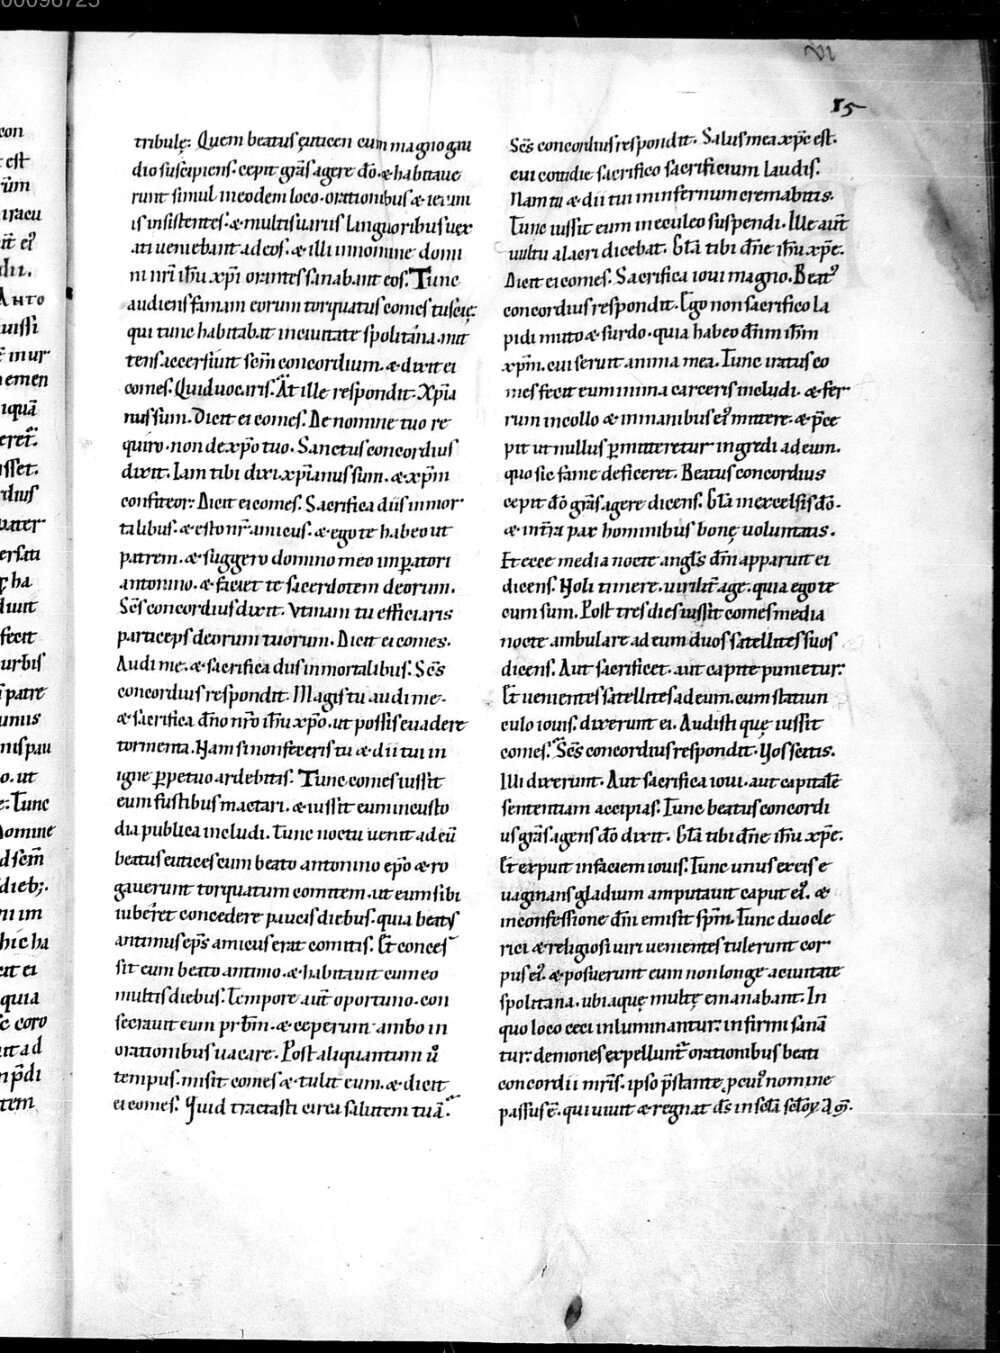 00098725
VI
15
con
est
tribulę. Quem beatus euticen cum magno gau
dio suscipiens. cepit grãs agere dõ. & habitaue
runt simul in eodem loco. orationibus & ieiuni
is insistentes. & multis uariis linguoribus uex
ati ueniebant ad eos. & illi in nomine domi
ni nr̃i ihũ xp̃i orantes sanabant eos. Tunc
audiens famam eorum torquatus comes tuscię
qui tunc habitabat in ciuitate spolitana. mit
tens accersiuit sc̃m concordium. & dixit ei
comes. Quid uocaris. At ille respondit. Xp̃ia
nus sum. Dicit ei comes. De nomine tuo re
quiro. non de xp̃o tuo. Sanctus concordius
dixit. Iam tibi dixi xp̃ianus sum. & xp̃m
confiteor. Dicit ei comes. Sacrifica diis inmor
talibus. & esto nr̃ amicus. & ego te habeo ut
patrem. & suggero domino meo imperatori
antonino. & faciet te sacerdotem deorum.
Sc̃s concordius dixit. Vtinam tu efficiaris
particeps deorum tuorum. Dicit ei comes.
Audi me. & sacrifica diis inmortalibus. Sc̃s
concordius respondit. Magis tu audi me.
& sacrifica dño nr̃o ihũ xp̃o. ut possis euadere
tormenta. Nam si non feceris tu & dii tui in
igne ꝑpetuo ardebitis. Tunc comes iussit
eum fustibus mactari. & iussit eum in custo
dia publica includi. Tunc noctu uenit ad eũ
beatus eutices cum beato antonino ep̃o & ro
gauerunt torquatum comitem. ut eum sibi
iuberet concedere paucis diebus. quia beatꝰ
antimus ep̃s amicus erat comitis. Et conces
sit eum beato antimo. & habitauit cum eo
multis diebus. Tempore aut̃ oportuno. con
secrauit eum pr̃bm̃. & ceperunt ambo in
orationibus uacare. Post aliquantum ũ
tempus. misit comes & tulit eum. & dicit
ei comes. Quid tractasti circa salutem tuã.
Sc̃s concordius respondit. Salus mea xp̃c est.
cui cottidie sacrifico sacrificium laudis.
Nam tu & dii tui in infernum cremabitis.
Tunc iussit eum in eculeo suspendi. Ille aut̃
uultu alacri dicebat. Gl̃a tibi dñe ihũ xp̃e.
Dicit ei comes. Sacrifica ioui magno. Beatꝰ
concordius respondit. Ego non sacrifico la
pidi muto & surdo. quia habeo dñm ihm̃
xp̃m. cui seruit anima mea. Tunc iratus co
mes fecit eum in ima carceris includi. & fer
rum in collo & in manibus eiꝰ mittere. & p̃ce
pit ut nullus ꝑmitteretur ingredi ad eum.
quo sic fame deficeret. Beatus concordius
cepit dõ grãs agere dicens. Gl̃a in excelsis dõ.
& in tr̃a pax hominibus bonę voluntatis.
Et ecce media nocte angl̃s dñi apparuit ei
dicens. Noli timere. uirilit̃ age. quia ego te
cum sum. Post tres dies iussit comes media
nocte ambulare ad eum duos satellites suos
dicens. Aut sacrificet. aut capite punietur.
Et uenientes satellites ad eum. cum statiun
culo iouis. dixerunt ei. Audisti quę iussit
comes. Sc̃s concordius respondit. Vos scitis.
Illi dixerunt. Aut sacrifica ioui. aut capitalẽ
sententiam accipias. Tunc beatus concordi
us grãs agens dõ dixit. Gl̃a tibi dñe ihũ xp̃e.
Et expuit in faciem iouis. Tunc unus ex eis e
uaginans gladium amputauit caput eiꝰ. &
in confessione dñi emisit sp̃m. Tunc duo cle
rici & religiosi uiri uenientes tulerunt cor
pus eiꝰ. & posuerunt eum non longe a ciuitate
spolitana. ubi aquę multę emanabant. In
quo loco ceci inluminantur. infirmi sanã
tur. demones expellunt̃ orationibus beati
concordii mr̃is. ipso p̃stante. ꝓ cuiꝰ nomine
passus ẽ. qui uiuit & regnat d̃s in sc̃la sc̃loꝝ. am̃.